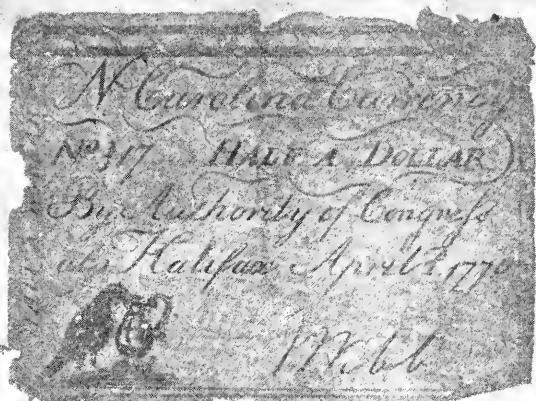 N. Carolina Currency
No 317 HALF A DOLLAR
By Authority of Congress
at Halifax April 2, 1776
J Webb